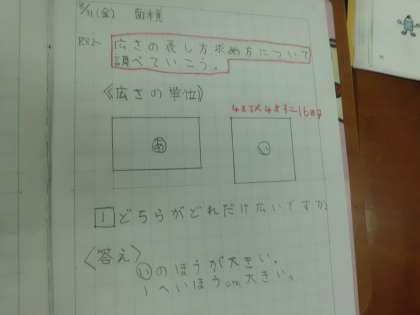 (金) 面積
広さの表し方求め方について
調べていこう。
《広さの単位》
あ
い
1 どちらがどれだけ広いですか
〈答え〉
いのほうが大きい。
1へいほうcm大きい。